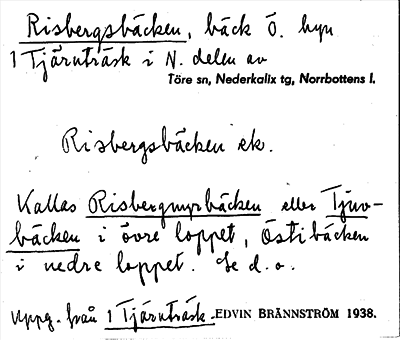 Risbergsbäcken, bäck Ö. hyn
1 Tjärnträsk i N. delen av
Töre sn, Nederkalix tg, Norrbottens l.
Risbergsbäcken ek.
Kallas Risbergmyrbäcken eller Tjuv-
bäcken i övre loppet, Östibäcken
i nedre loppet. Se d. o.
Uppg. från 1 Tjärnträsk. EDVIN BRÄNNSTRÖM 1938.